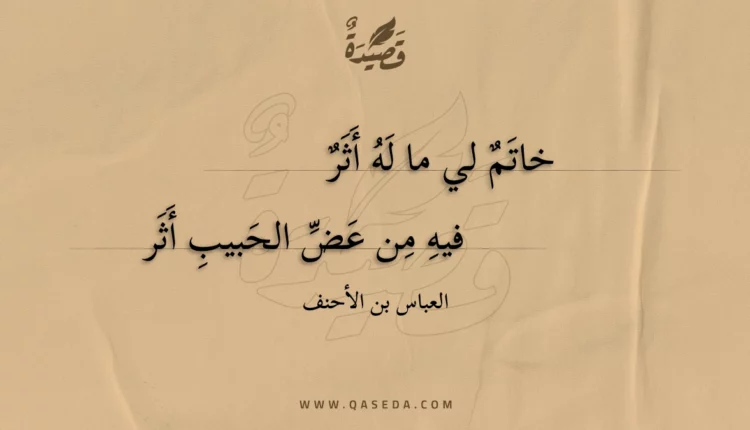 قَصِيدَةٌ
خاتَمٌ لي ما لَهُ أَثَرٌ
فيهِ مِن عَضِّ الحَبيبِ أَثَر
العباس بن الأحنف
WWW.QASEDA.COM